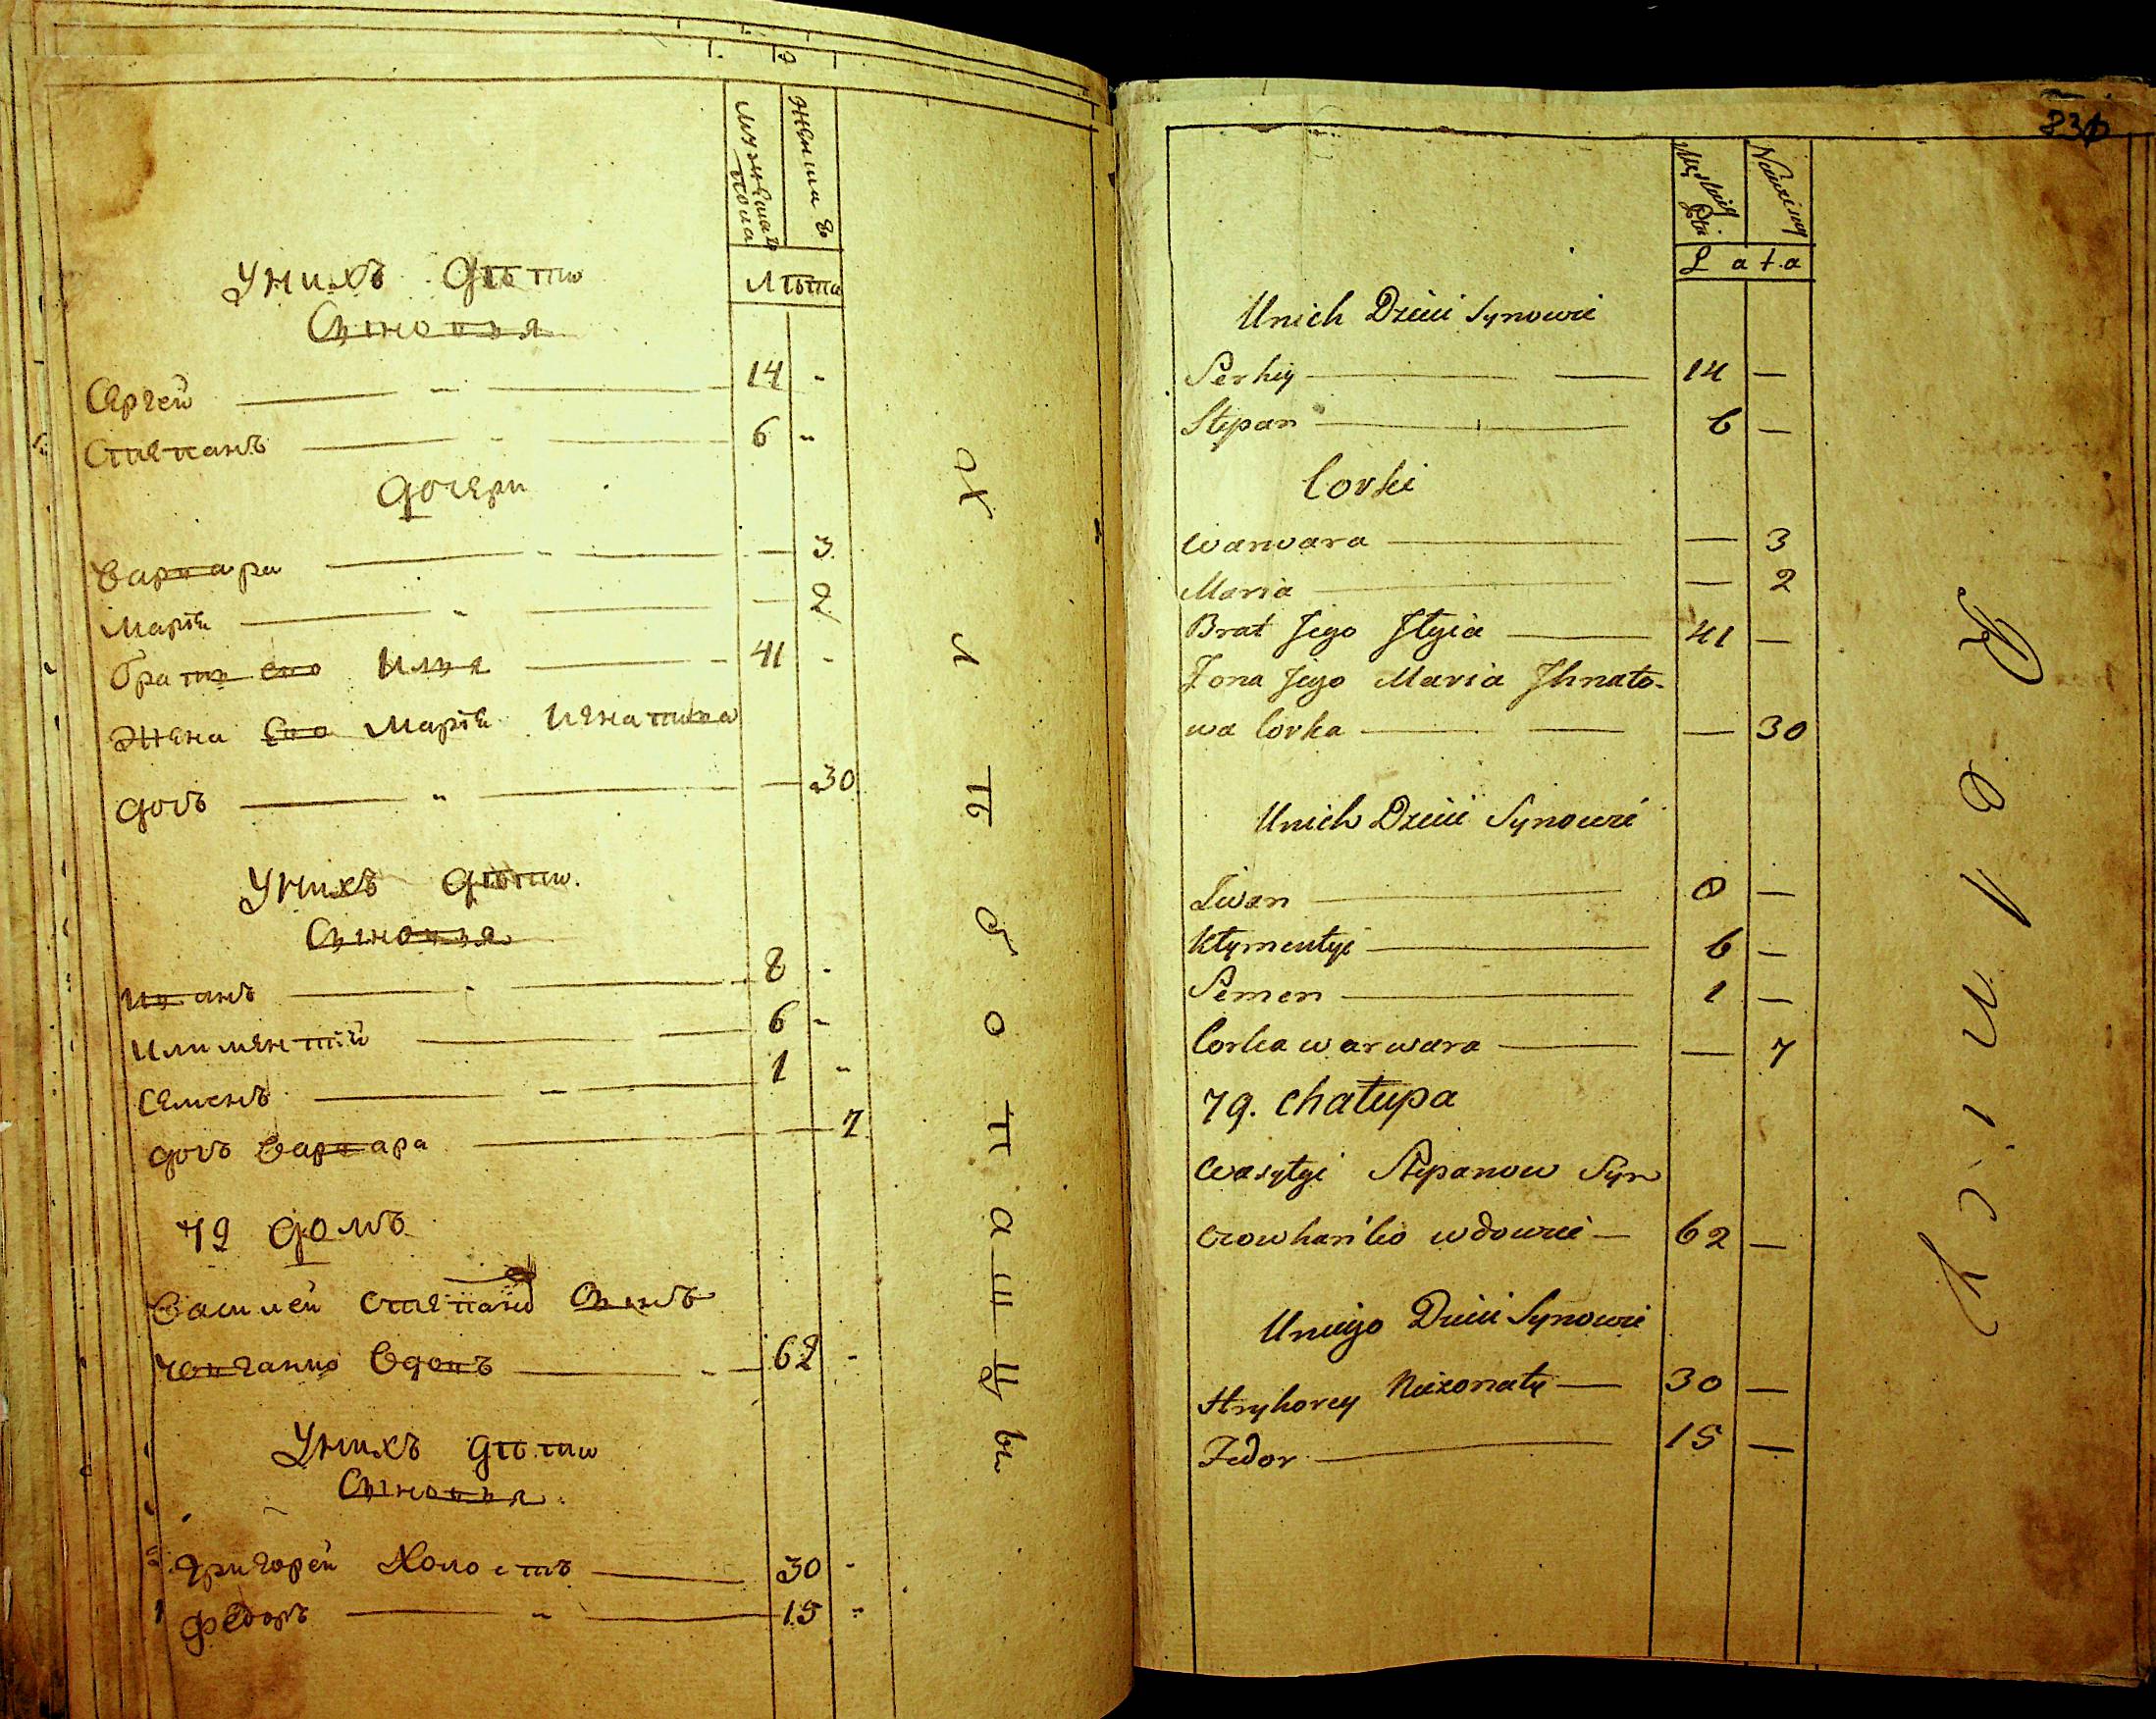 мужеска пола
женска
лѣта
Унихъ дѣти
Сыновья
Сергей 14 -
Степанъ 6 -
дочери
Варвара — 3
Марія — 2
братъ его Илья 41 -
Жена его Марія Игнатова
дочь — 30
Унихъ дѣти
Сыновья
Иванъ 8 -
Климентій 6 -
Семенъ 1 -
дочь Варвара — 7
79 домъ
Василей Степановъ Сынъ
Човганко вдовъ 62 -
Унихъ дѣти
Сыновья
Григорей Холостъ 30 -
Федоръ 15 -
Хлѣбопашцы
Lata
Unich Dzieci Synowie
Serhiy 14 —
Stepan 6 —
Corki
Warwara — 3
Maria — 2
Brat Jego Jłyia 41 —
Żona Jego Maria Jhnato-
wa Corka — 30
Unich Dzieci Synowie
Jwan 8 —
Kłymentyi 6 —
Semen 1 —
Corka warwara — 7
79. Chałupa
Wasyłyi Stepanow Syn
Czowhańko wdowiec 62 —
Uniego Dzieci Synowie
Hryhorey Nieżonaty 30 —
Fedor 15 —
Rolnicy